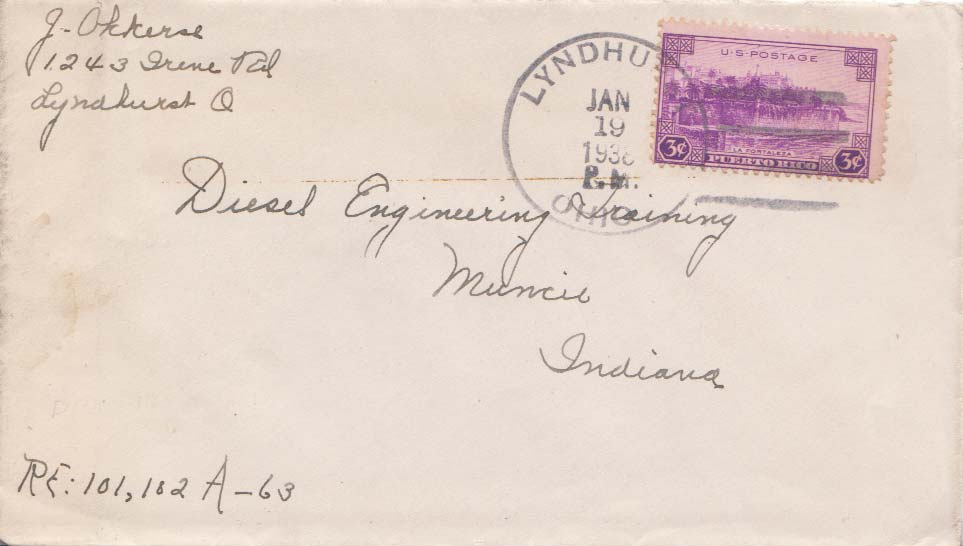 J. Okkerse
1243 Irene Rd
Lyndhurst O
LYNDHU
JAN
19
1938
P.M.
OHIO
U·S·POSTAGE
LA FORTALEZA
3¢ PUERTO RICO 3¢
Diesel Engineering Training
Muncie
Indiana
RE: 101, 102 A-63